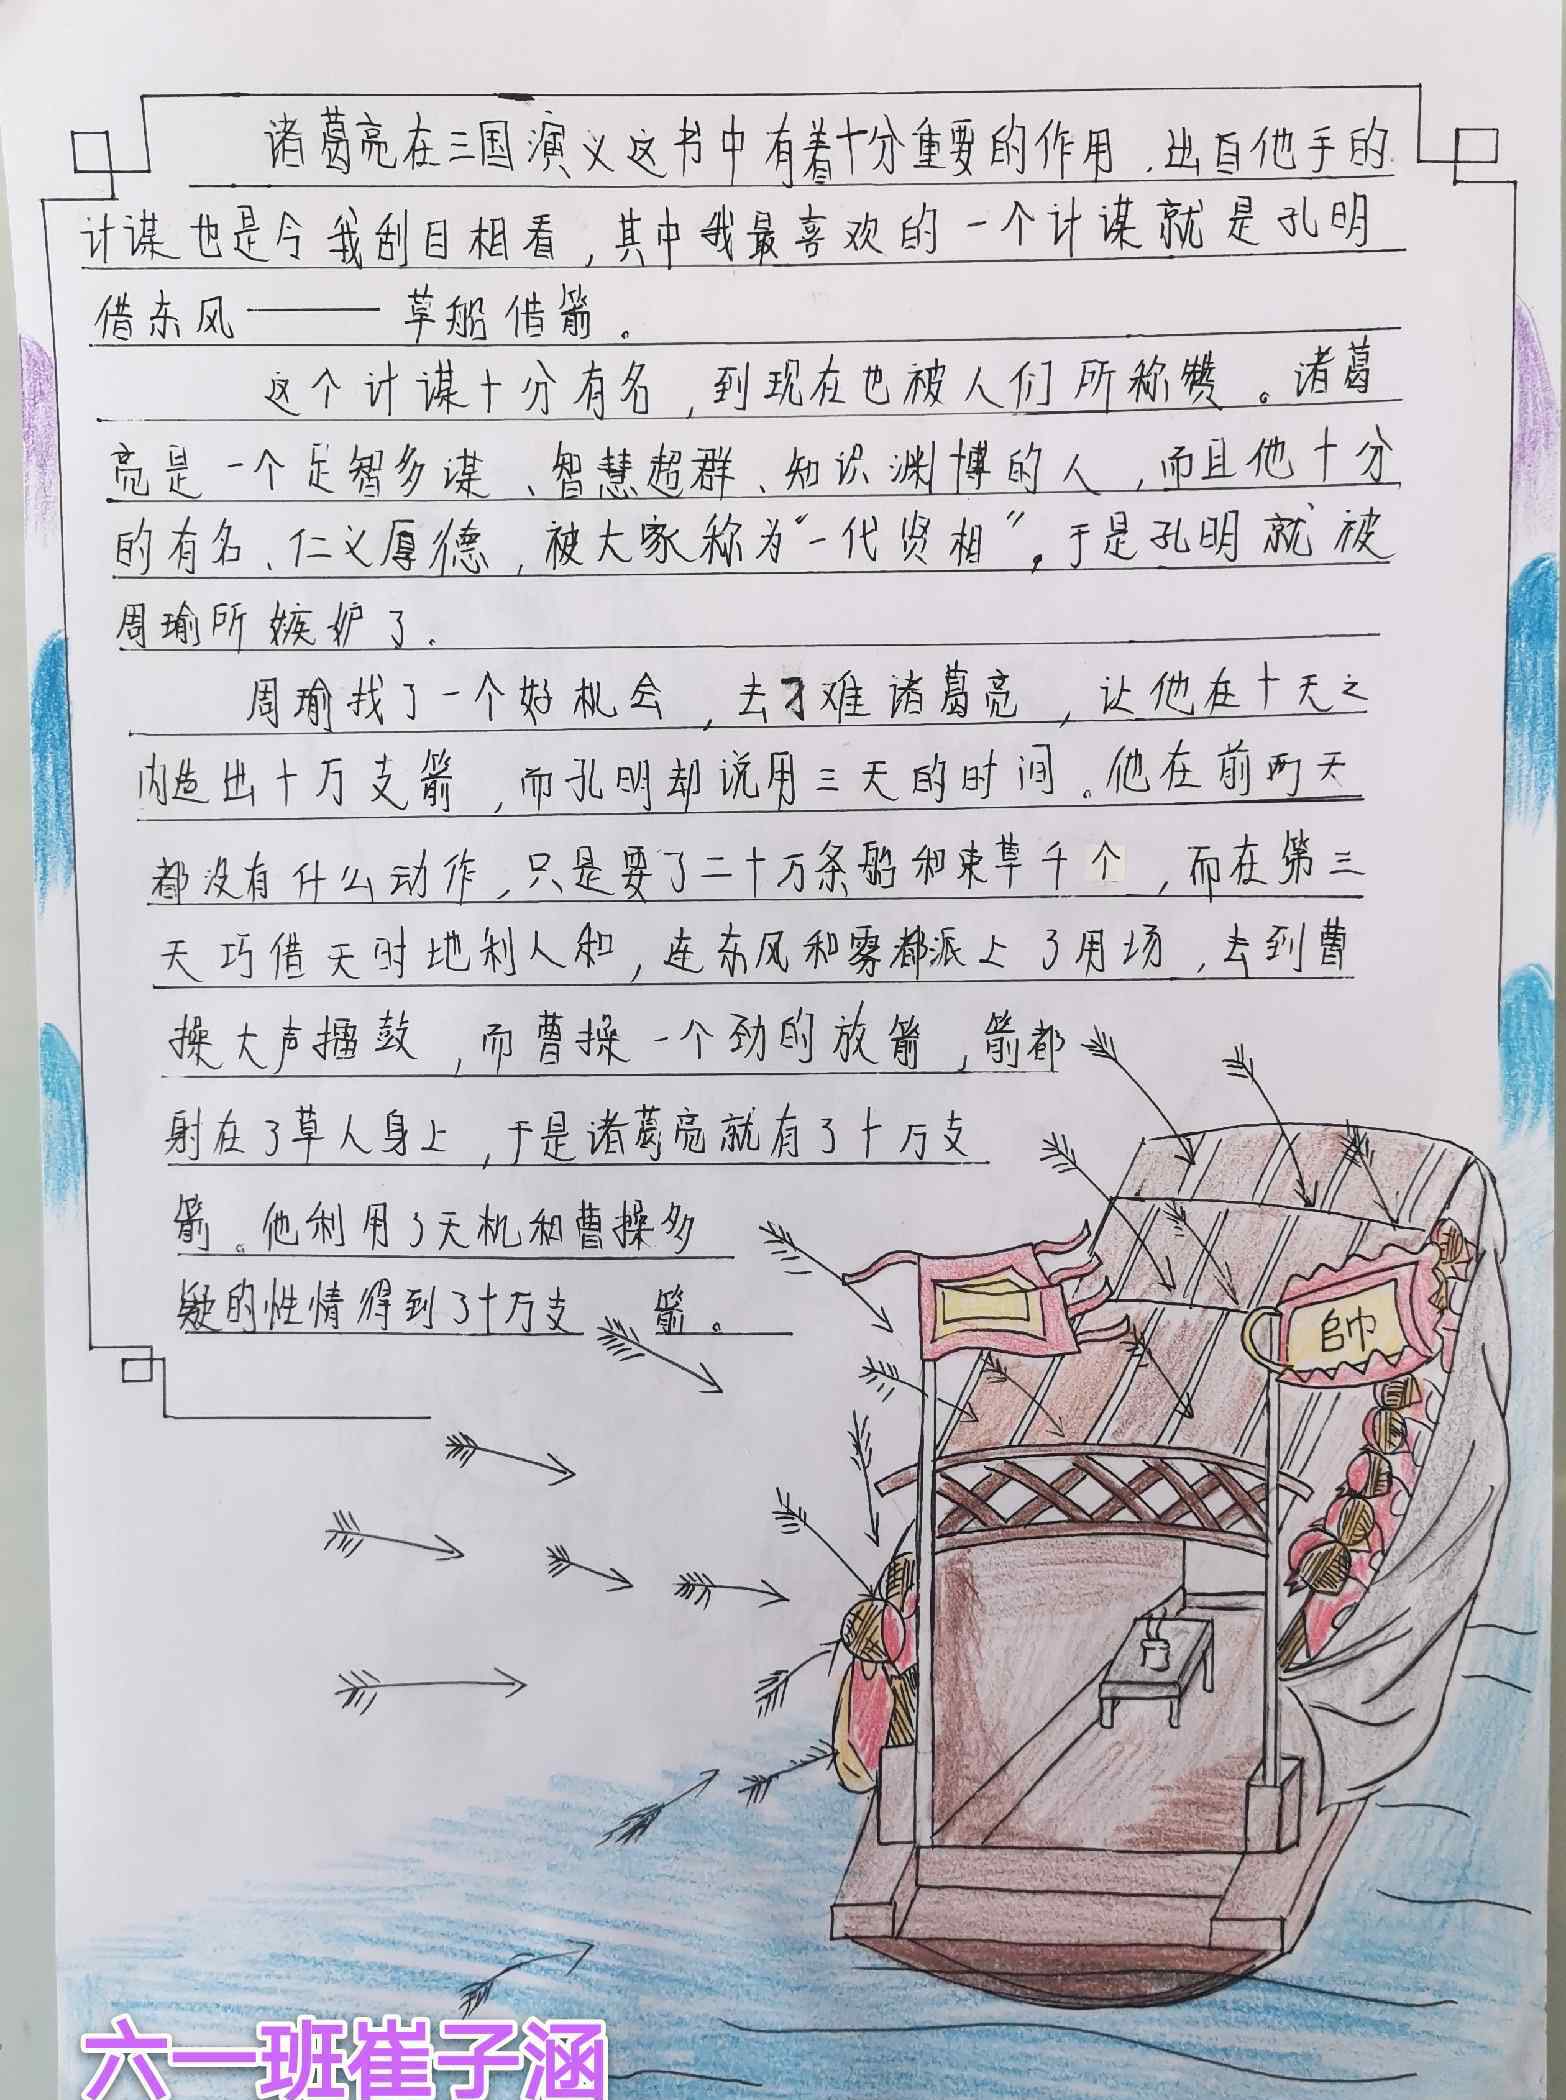 诸葛亮在三国演义这书中有着十分重要的作用．出自他手的
计谋也是令我刮目相看，其中我最喜欢的一个计谋就是孔明
借东风——草船借箭。
这个计谋十分有名，到现在也被人们所称赞。诸葛
亮是一个足智多谋、智慧超群、知识渊博的人，而且他十分
的有名、仁义厚德，被大家称为“一代贤相”．于是孔明就被
周瑜所嫉妒了．
周瑜找了一个好机会，去刁难诸葛亮，让他在十天之
内造出十万支箭，而孔明却说用三天的时间。他在前两天
都没有什么动作，只是要了二十万条船和束草千个，而在第三
天巧借天时地利人和，连东风和雾都派上了用场，去到曹
操大声擂鼓，而曹操一个劲的放箭，箭都
射在了草人身上，于是诸葛亮就有了十万支
箭。他利用了天机和曹操多
疑的性情得到了十万支箭。
帥
六一班崔子涵